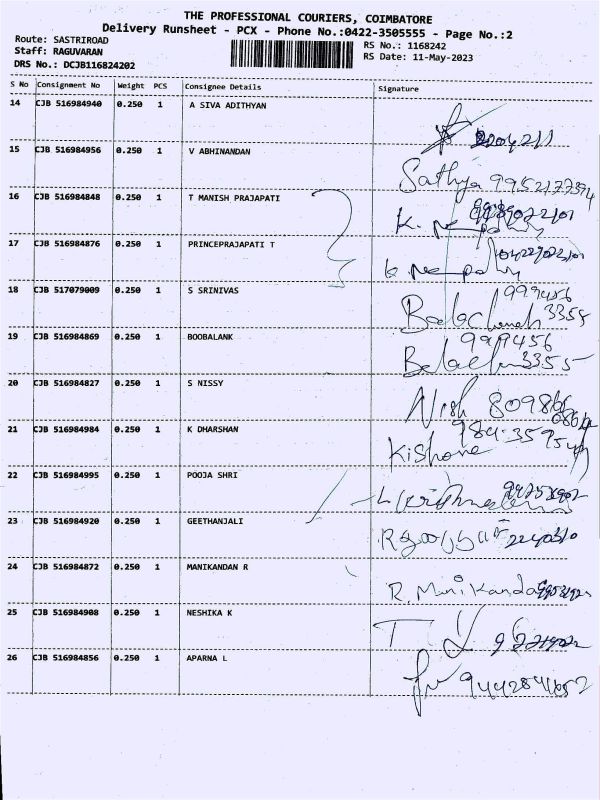 THE PROFESSIONAL COURIERS, COIMBATORE
Delivery Runsheet - PCX - Phone No.:0422-3505555 - Page No.:2
Route: SASTRIROAD
RS No.: 1168242
Staff: RAGUVARAN
RS Date: 11-May-2023
DRS No.: DCJB116824202
S No Consignment No Weight PCS Consignee Details Signature
14 CJB 516984940 0.250 1 A SIVA ADITHYAN
15 CJB 516984956 0.250 1 V ABHINANDAN
Sathya
16 CJB 516984848 0.250 1 T MANISH PRAJAPATI
17 CJB 516984876 0.250 1 PRINCEPRAJAPATI T
18 CJB 517079009 0.250 1 S SRINIVAS
999456
3355
19 CJB 516984869 0.250 1 BOOBALANK
999456
3355
20 CJB 516984827 0.250 1 S NISSY
Nish
21 CJB 516984984 0.250 1 K DHARSHAN
Kishore
22 CJB 516984995 0.250 1 POOJA SHRI
23 CJB 516984920 0.250 1 GEETHANJALI
24 CJB 516984872 0.250 1 MANIKANDAN R
R. Manikandan
25 CJB 516984908 0.250 1 NESHIKA K
26 CJB 516984856 0.250 1 APARNA L